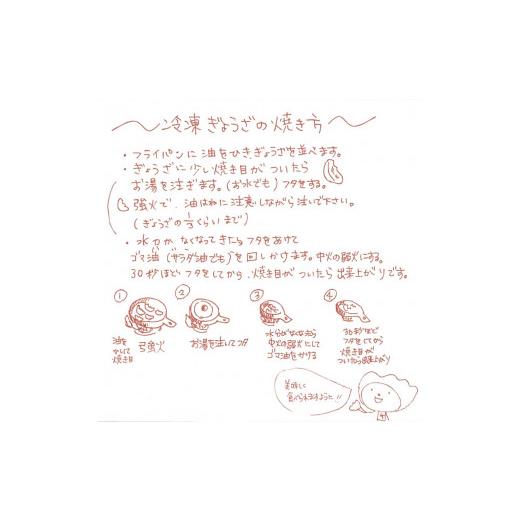 冷凍ぎょうざの焼き方
・フライパンに油をひき、ぎょうざを並べます。
・ぎょうざに少し焼き目がついたら
お湯を注ぎます。(お水でも)フタをする。
強火で、油はねに注意しながら注いで下さい。
(ぎょうざの1/3くらいまで)
・水分がなくなってきたらフタをあけて
ゴマ油(サラダ油でも)を回しかけます。中火の弱火にする。
30秒ほどフタをしてから、焼き目がついたら出来上がりです。
① ② ③ ④
油を
焼き目
強火
お湯を注いでフタ
水分がなくなったら
中火の弱火にして
ゴマ油をかける
30秒ほど
フタをしてから
焼き目が
ついたら出来上がり
美味しく
食べられますように!!